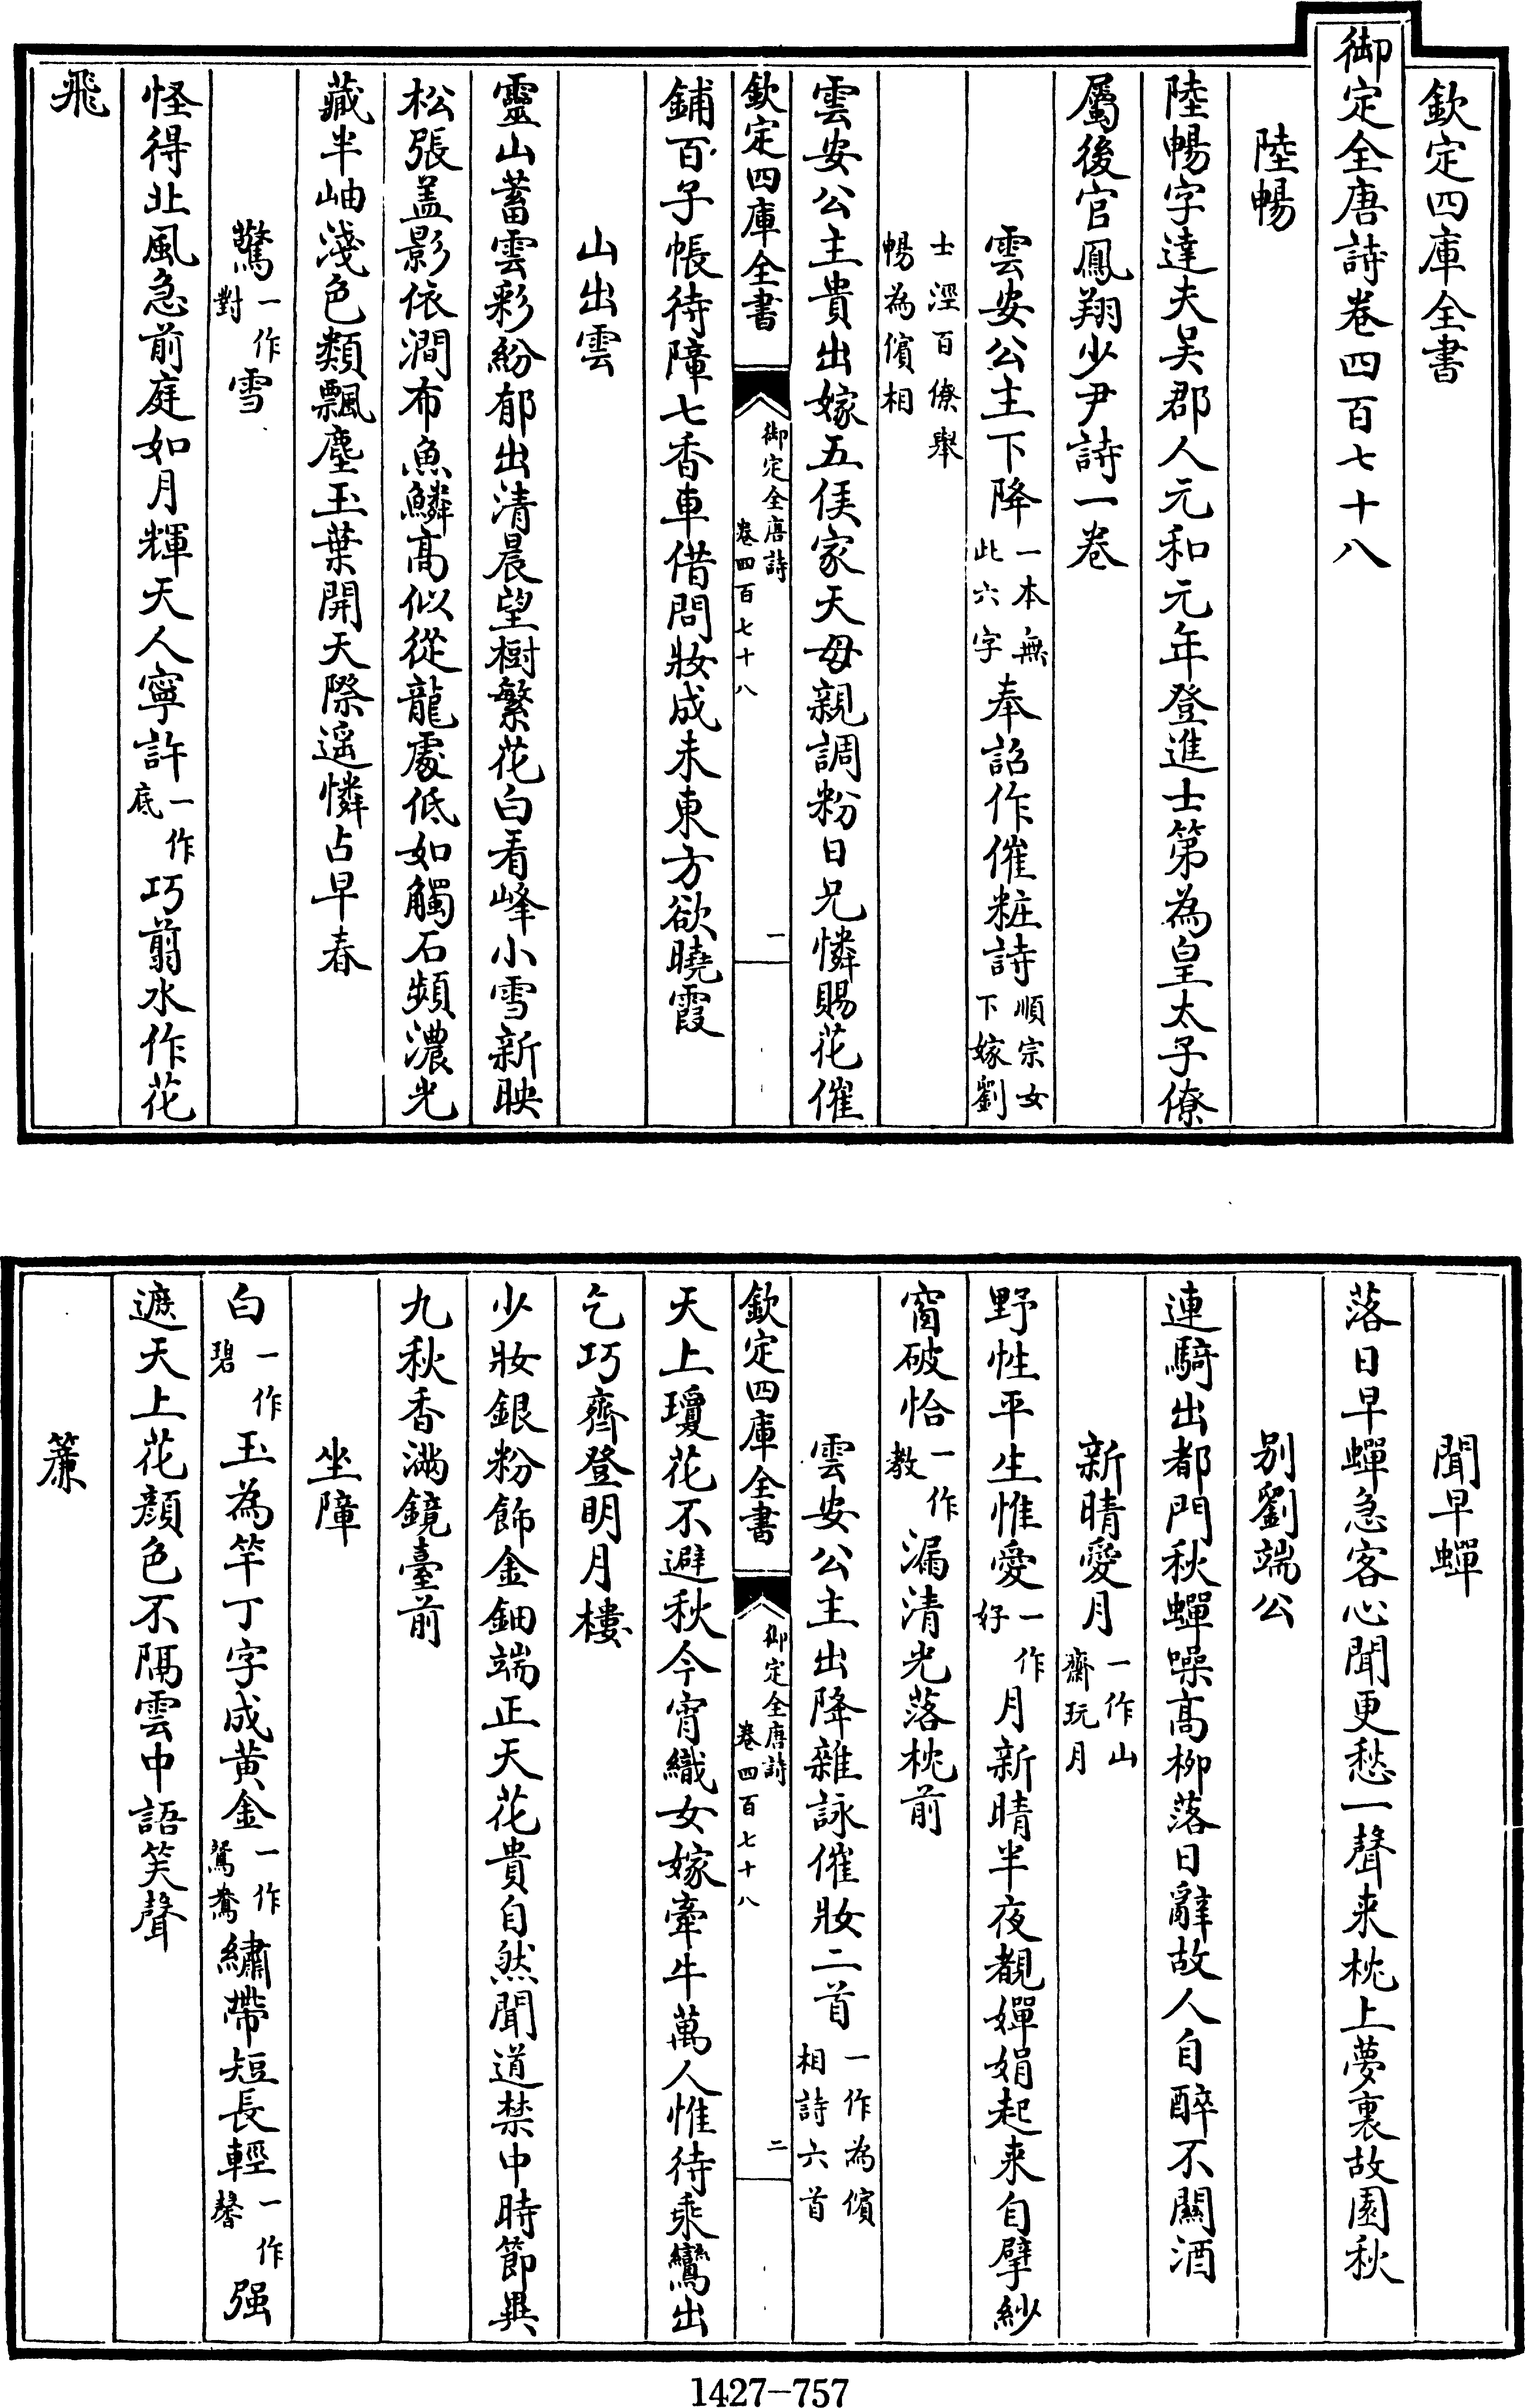 欽定四庫全書
御定全唐詩卷四百七十八
陸暢
陸暢字達夫吴郡人元和元年登進士第為皇太子僚
屬後官鳳翔少尹詩一卷
雲安公主下降一本無此六字奉詔作催粧詩順宗女下嫁劉
士涇百僚舉暢為儐相
雲安公主貴出嫁五侯家天母親調粉日兄憐賜花催
欽定四庫全書 御定全唐詩 卷四百七十八 一
鋪百子帳待障七香車借問妝成未東方欲曉霞
山出雲
靈山蓄雲彩紛郁出清晨望樹繁花白看峰小雪新映
松張盖影依澗布魚鱗髙似從龍處低如觸石頻濃光
藏半岫淺色類飄塵玉葉開天際遥憐占早春
驚一作對雪
怪得北風急前庭如月輝天人寧許一作底巧翦水作花
飛
聞早蟬
落日早蟬急客心聞更愁一聲来枕上夢裏故園秋
别劉端公
連騎出都門秋蟬噪髙柳落日辭故人自醉不關酒
新晴愛月一作山齋玩月
野性平生惟愛一作好月新晴半夜覩嬋娟起来自擘紗
窗破恰一作教漏清光落枕前
雲安公主出降雜詠催妝二首一作為儐相詩六首
欽定四庫全書 御定全唐詩 卷四百七十八 二
天上瓊花不避秋今宵織女嫁牽牛萬人惟待乘鸞出
乞巧齊登明月樓
少妝銀粉飾金鈿端正天花貴自然聞道禁中時節異
九秋香滿鏡臺前
坐障
白一作碧玉為竿丁字成黄金一作鴛鴦繡帶短長輕一作馨强
遮天上花顔色不隔雲中語笑聲
簾
1427-757